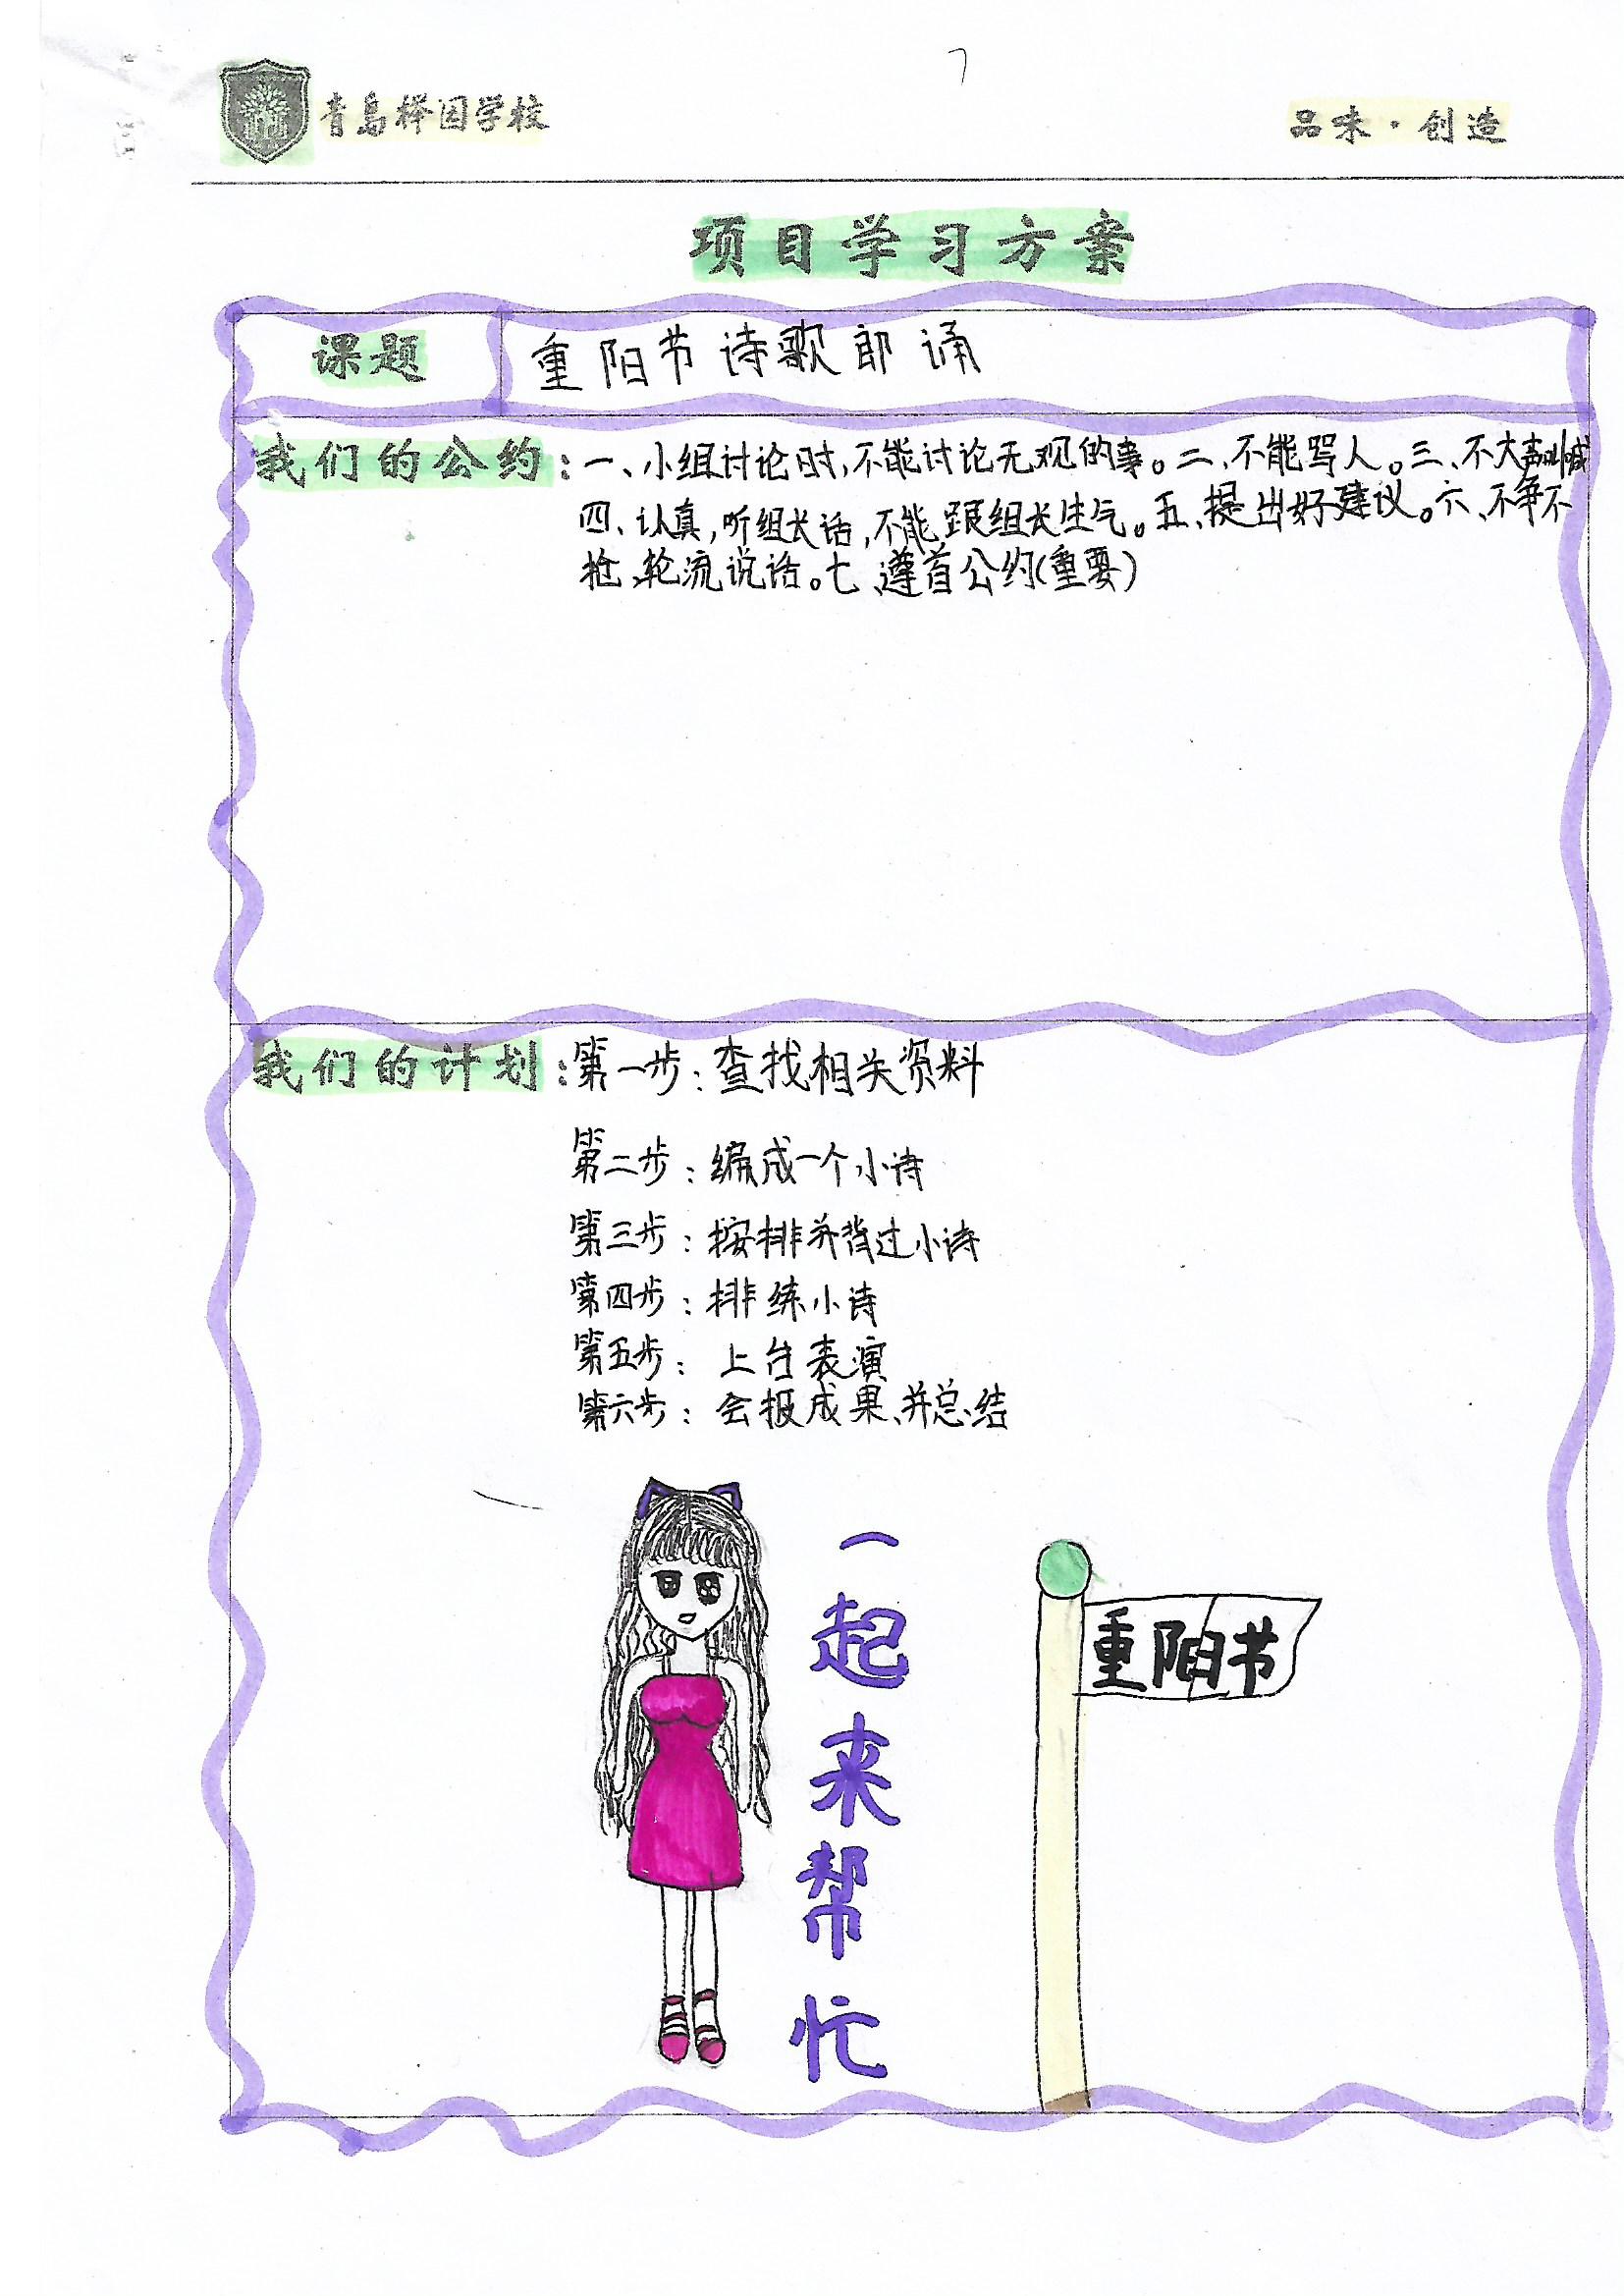 7
青岛榉园学校
品味·创造
项目学习方案
课题
重阳节诗歌郎诵
我们的公约：一、小组讨论时,不能讨论无观的事。二、不能骂人。三、不大声叫喊
四、认真,听组长话,不能跟组长生气。五、提出好建议。六、不争不
抢、轮流说话。七、遵首公约(重要)
我们的计划：第一步：查找相关资料
第二步：编成一个小诗
第三步：按排并背过小诗
第四步：排练小诗
第五步：上台表演
第六步：会报成果、并总结
一起来帮忙
重阳节